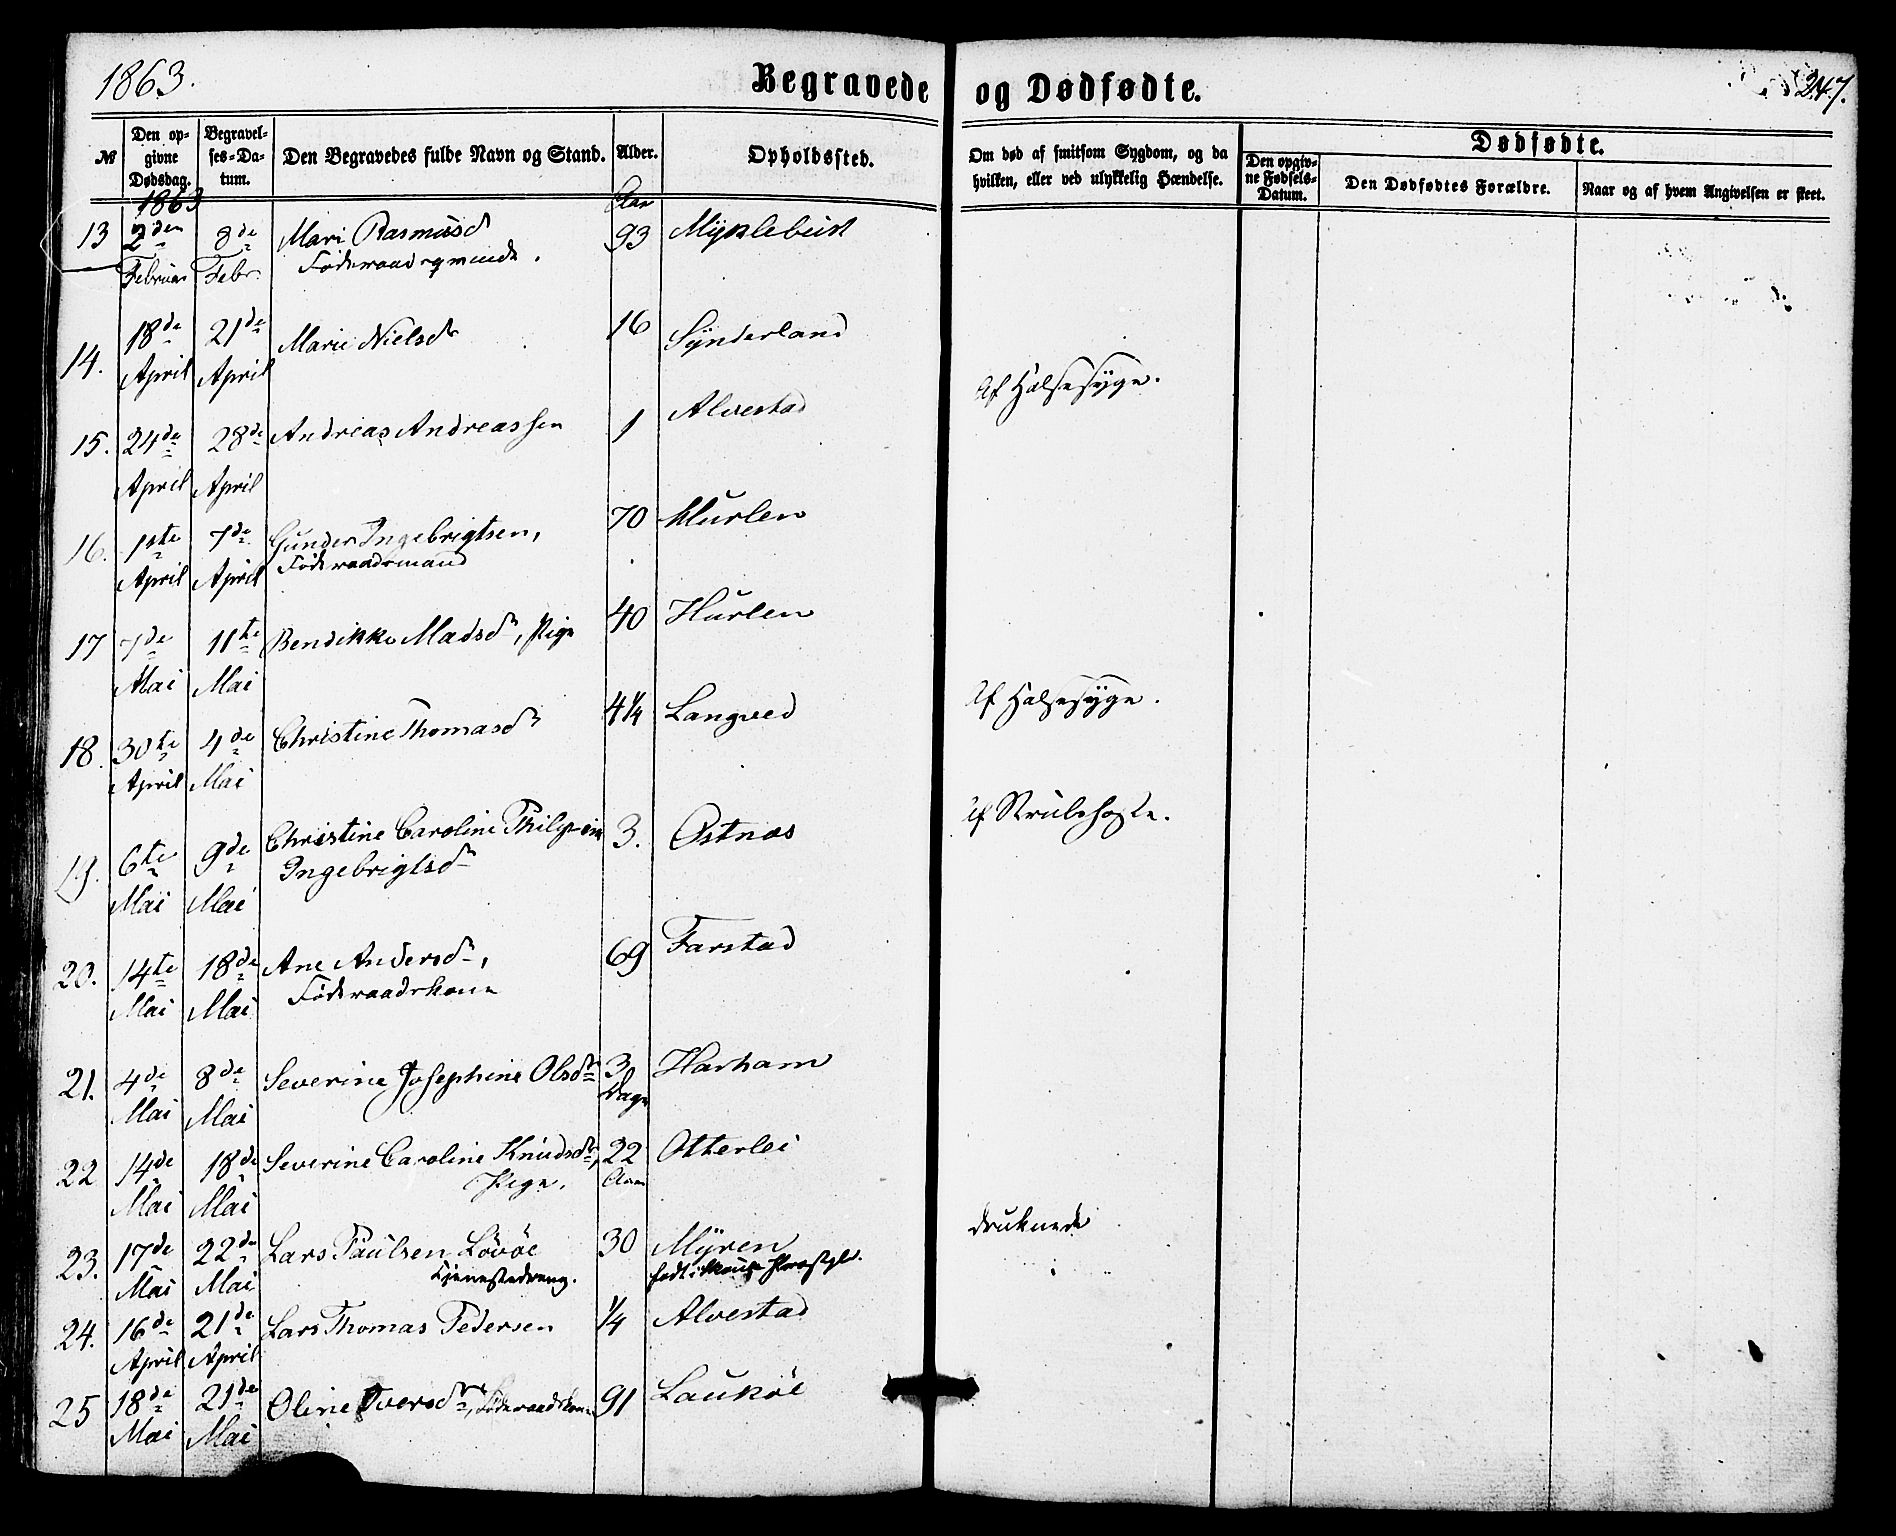 1863.
Begravede og Dødfødte.
247.
№
Den opgivne Dødsdag.
Begravelses-Datum.
Den Begravedes fulde Navn og Stand.
Alder.
Opholdssted.
Om død af smitsom Sygdom, og da hvilken, eller ved ulykkelig Hændelse.
Dødfødte.
Den opgivne Fødsels-Datum.
Den Dødfødtes Forældre.
Naar og af hvem Angivelsen er skeet.
1863 Aar
13 2den 8de Mari Rasmusd 93 Myklebust
Februar Febr. Føderaadsqvinde.
14. 18de 21de Marie Nielsdr 16 Synderland
April April Af Halsesyge.
15. 24de 28de Andreas Andreassen 1 Alvestad
April April
16. 1ste 7de Gunder Ingebrigtsen, 70 Hurlen
April April Føderaadsmand
17 7de 11te Bendikke Madsdr, Pige 40 Hurlen
Mai Mai
18. 30te 4de Christine Thomasdr 4 1/4 Langved Af Halsesyge.
April Mai
19. 6te 9de Christine Caroline 3. Ostnes Af Strubehoste.
Mai Mai Ingebrigtsdr
20. 14te 18de Ane Andersdr, 69 Farstad
Mai Mai Føderaadskone
21. 4de 8de Severine Josephine Olsdr 3 Harham
Mai Mai Dage
22 14de 18de Severine Caroline Knudsdr, 22 Otterlei
Mai Mai Pige. Aar
23. 17de 22de Lars Paulsen Løvøe 30 Myren druknede
Mai Mai Tjenestedreng. født i
24. 16de 21de Lars Thomas Pedersen 1/4 Alvestad
April April
25 18de 21de Oline Iversdr, Føderaadskone 91 Laukøe
Mai Mai